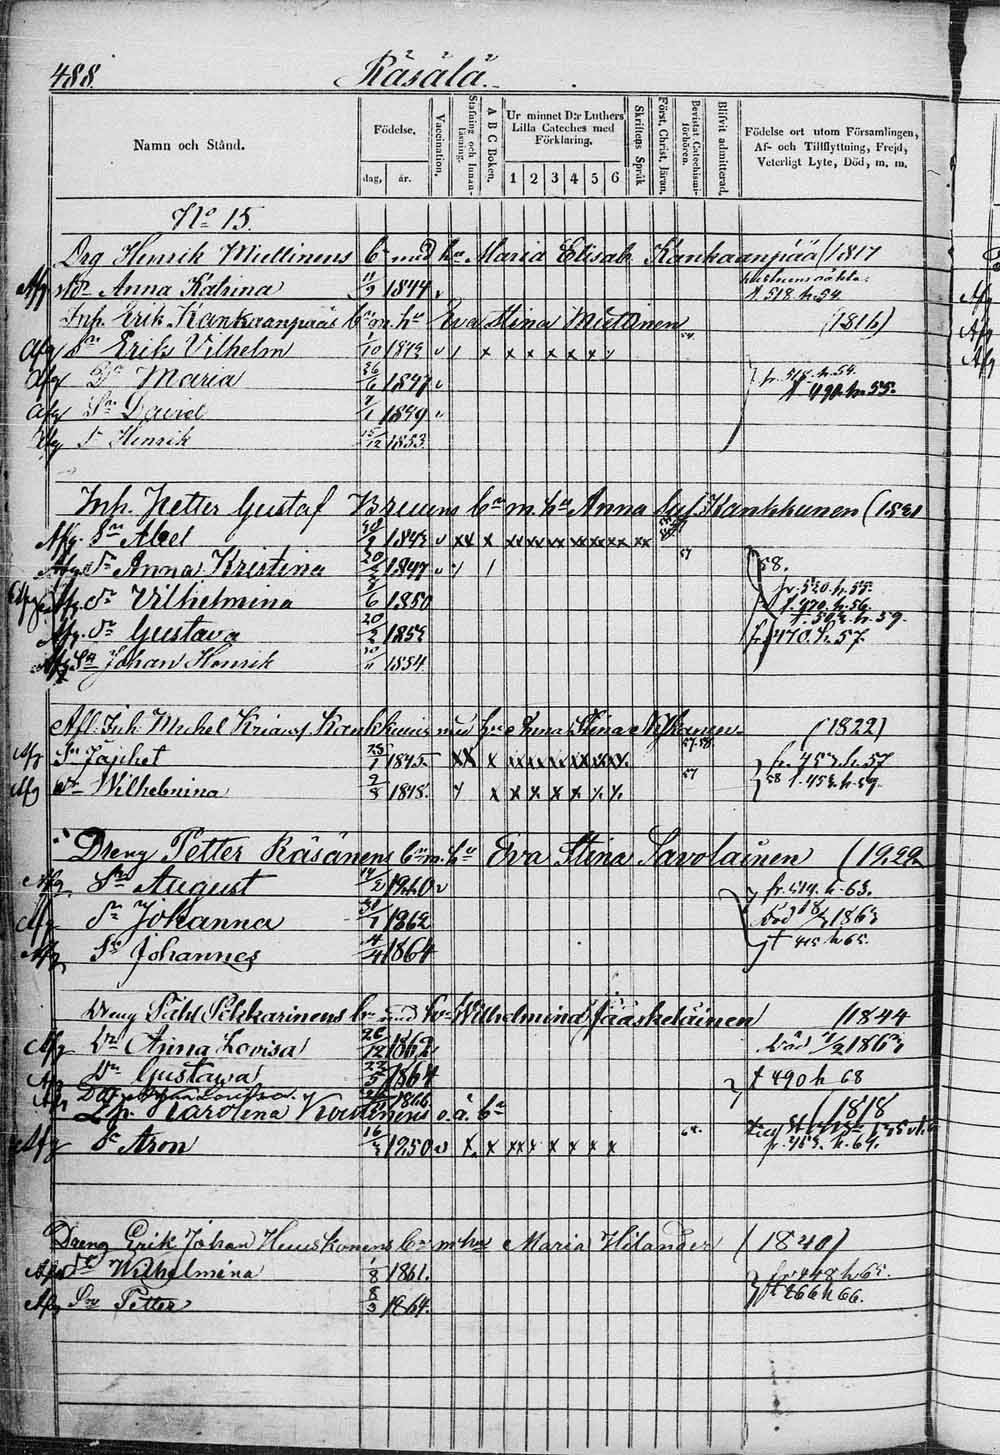 488.
Räsälä.
Namn och Stånd.
Födelse,
dag, år.
Vaccination.
Stafning och Innanläsning.
A B C Boken.
Ur minnet D:r Luthers Lilla Cateches med Förklaring.
1 2 3 4 5 6
Skriftens Språk
Först. Christ. Läran.
Bevistat Catechismiförhören.
Blifvit admitterad.
Födelse ort utom Församlingen, Af- och Tillflyttning, Frejd, Veterligt Lyte, Död, m. m.
No 15.
Drg Henrik Miettinens bn med hu Maria Elisab. Kankaanpää (1817
Afg Dr Anna Katrina 11/9 1844 v
t. 518. h. 54
Inh. Erik Kankaanpääs bn m. hu Eva Stina Miettinen (1816)
Afg Sn Erik Vilhelm 1/10 1843 v / x x x x x x
Afg Dr Maria 26/6 1847 v
fr. 518. h. 54.
t 490. h. 55.
Afg Sn David 2/1 1849 v
Afg Sn Henrik 15/12 1853
Inh. Petter Gustaf Bruuns bn m. hu Anna Kankkunen (1821
Afg. Sn Abel 1843 v xx x xx xx xx xx xx xx xx
Afg Dr Anna Kristina 20/2 1847 v
57
58.
Afg. Dr Vilhelmina 3/6 1850
fr. 520. h. 55.
t. 470. h. 56.
Afg. Dr Gustava 20/2 1853
h. 59.
fr. 470. h. 57.
Afg Sn Johan Henrik 1854
Inh. Mickel Kankkunens med hu Anna Stina (1822)
57.58.
Afg Sn Japhet 25/1 1845 xx x xx xx xx xx xx xx
fr. 453. h. 57
Afg Dr Wilhelmina 2/8 1848.
57
58 t. 453. h. 59.
Dreng Petter Räsänens bn m. hu Eva Stina Savolainen (1829
Afg Sn August 14/2 1860 v
fr. 519. h. 63.
Afg Dr Johanna 31/1 1862
död 1863
Afg Sn Johannes 4/4 1864
t 415 h 65.
Dreng Pikkarinens bn med hu Wilhelmina Jääskeläinen (1844
Afg Dr Anna Lovisa 26/12 1862
död 1863
Afg Dr Gustava 22/5 1864
t 490 h 68
Afg Dr 1866
Karolina o. ä. bn (1818
Afg Sn Aron 16/3 1850 v x x xx x x x x x
fr. 453. h. 64.
Dreng Erik Johan Huuskonens bn m hu Maria Hilander (1840)
Afg Dr Wilhelmina 1/8 1861.
fr 448 h 65.
Afg Sn Petter 8/3 1864.
t 266 h 66.